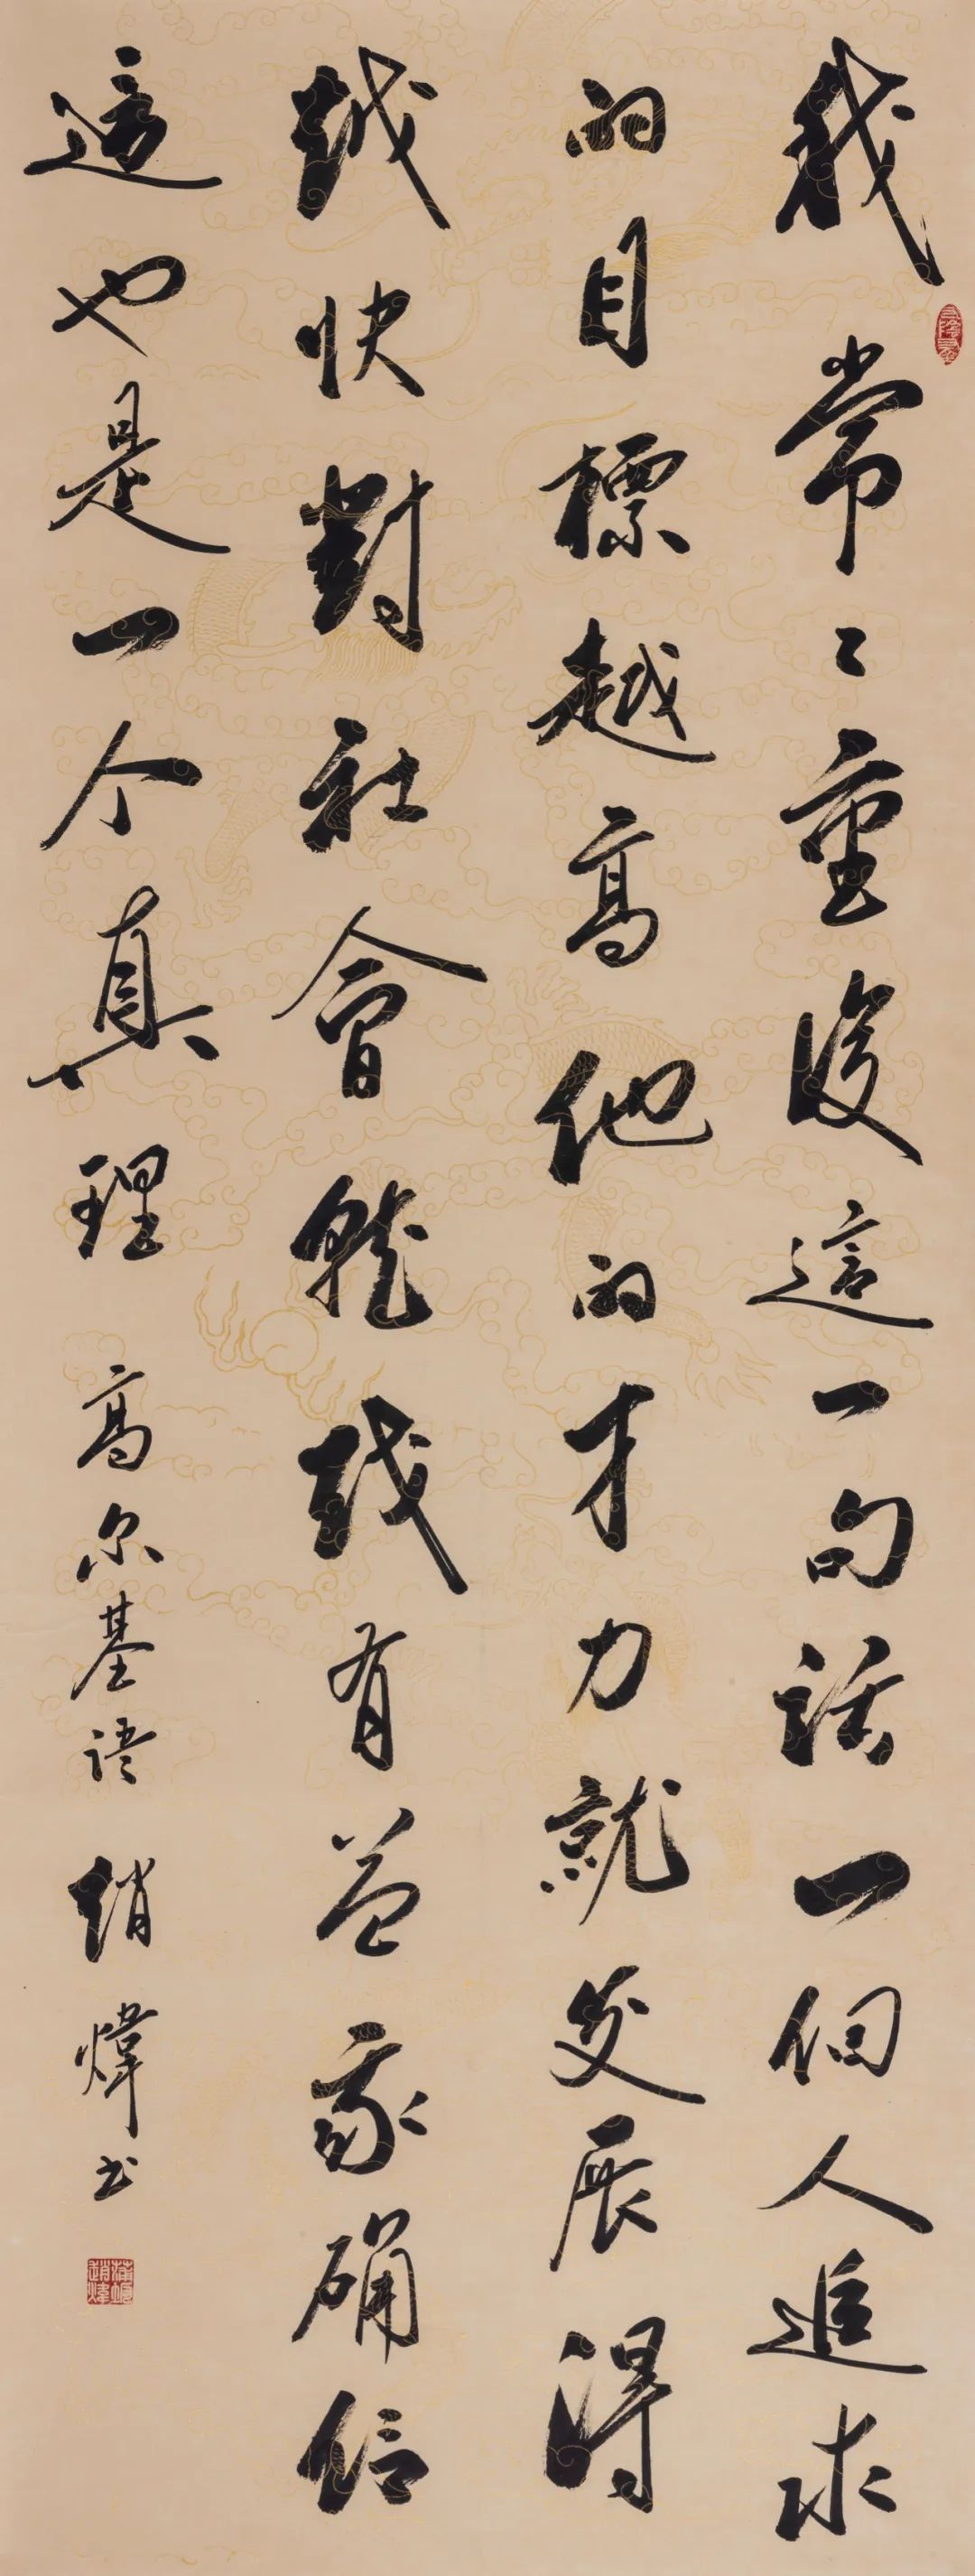 我常々重復這一句話一個人追求
的目標越高他的才力就發展得
越快對社會就越有益我確信
這也是一个真理 高尔基語 趙煒书
趙煒